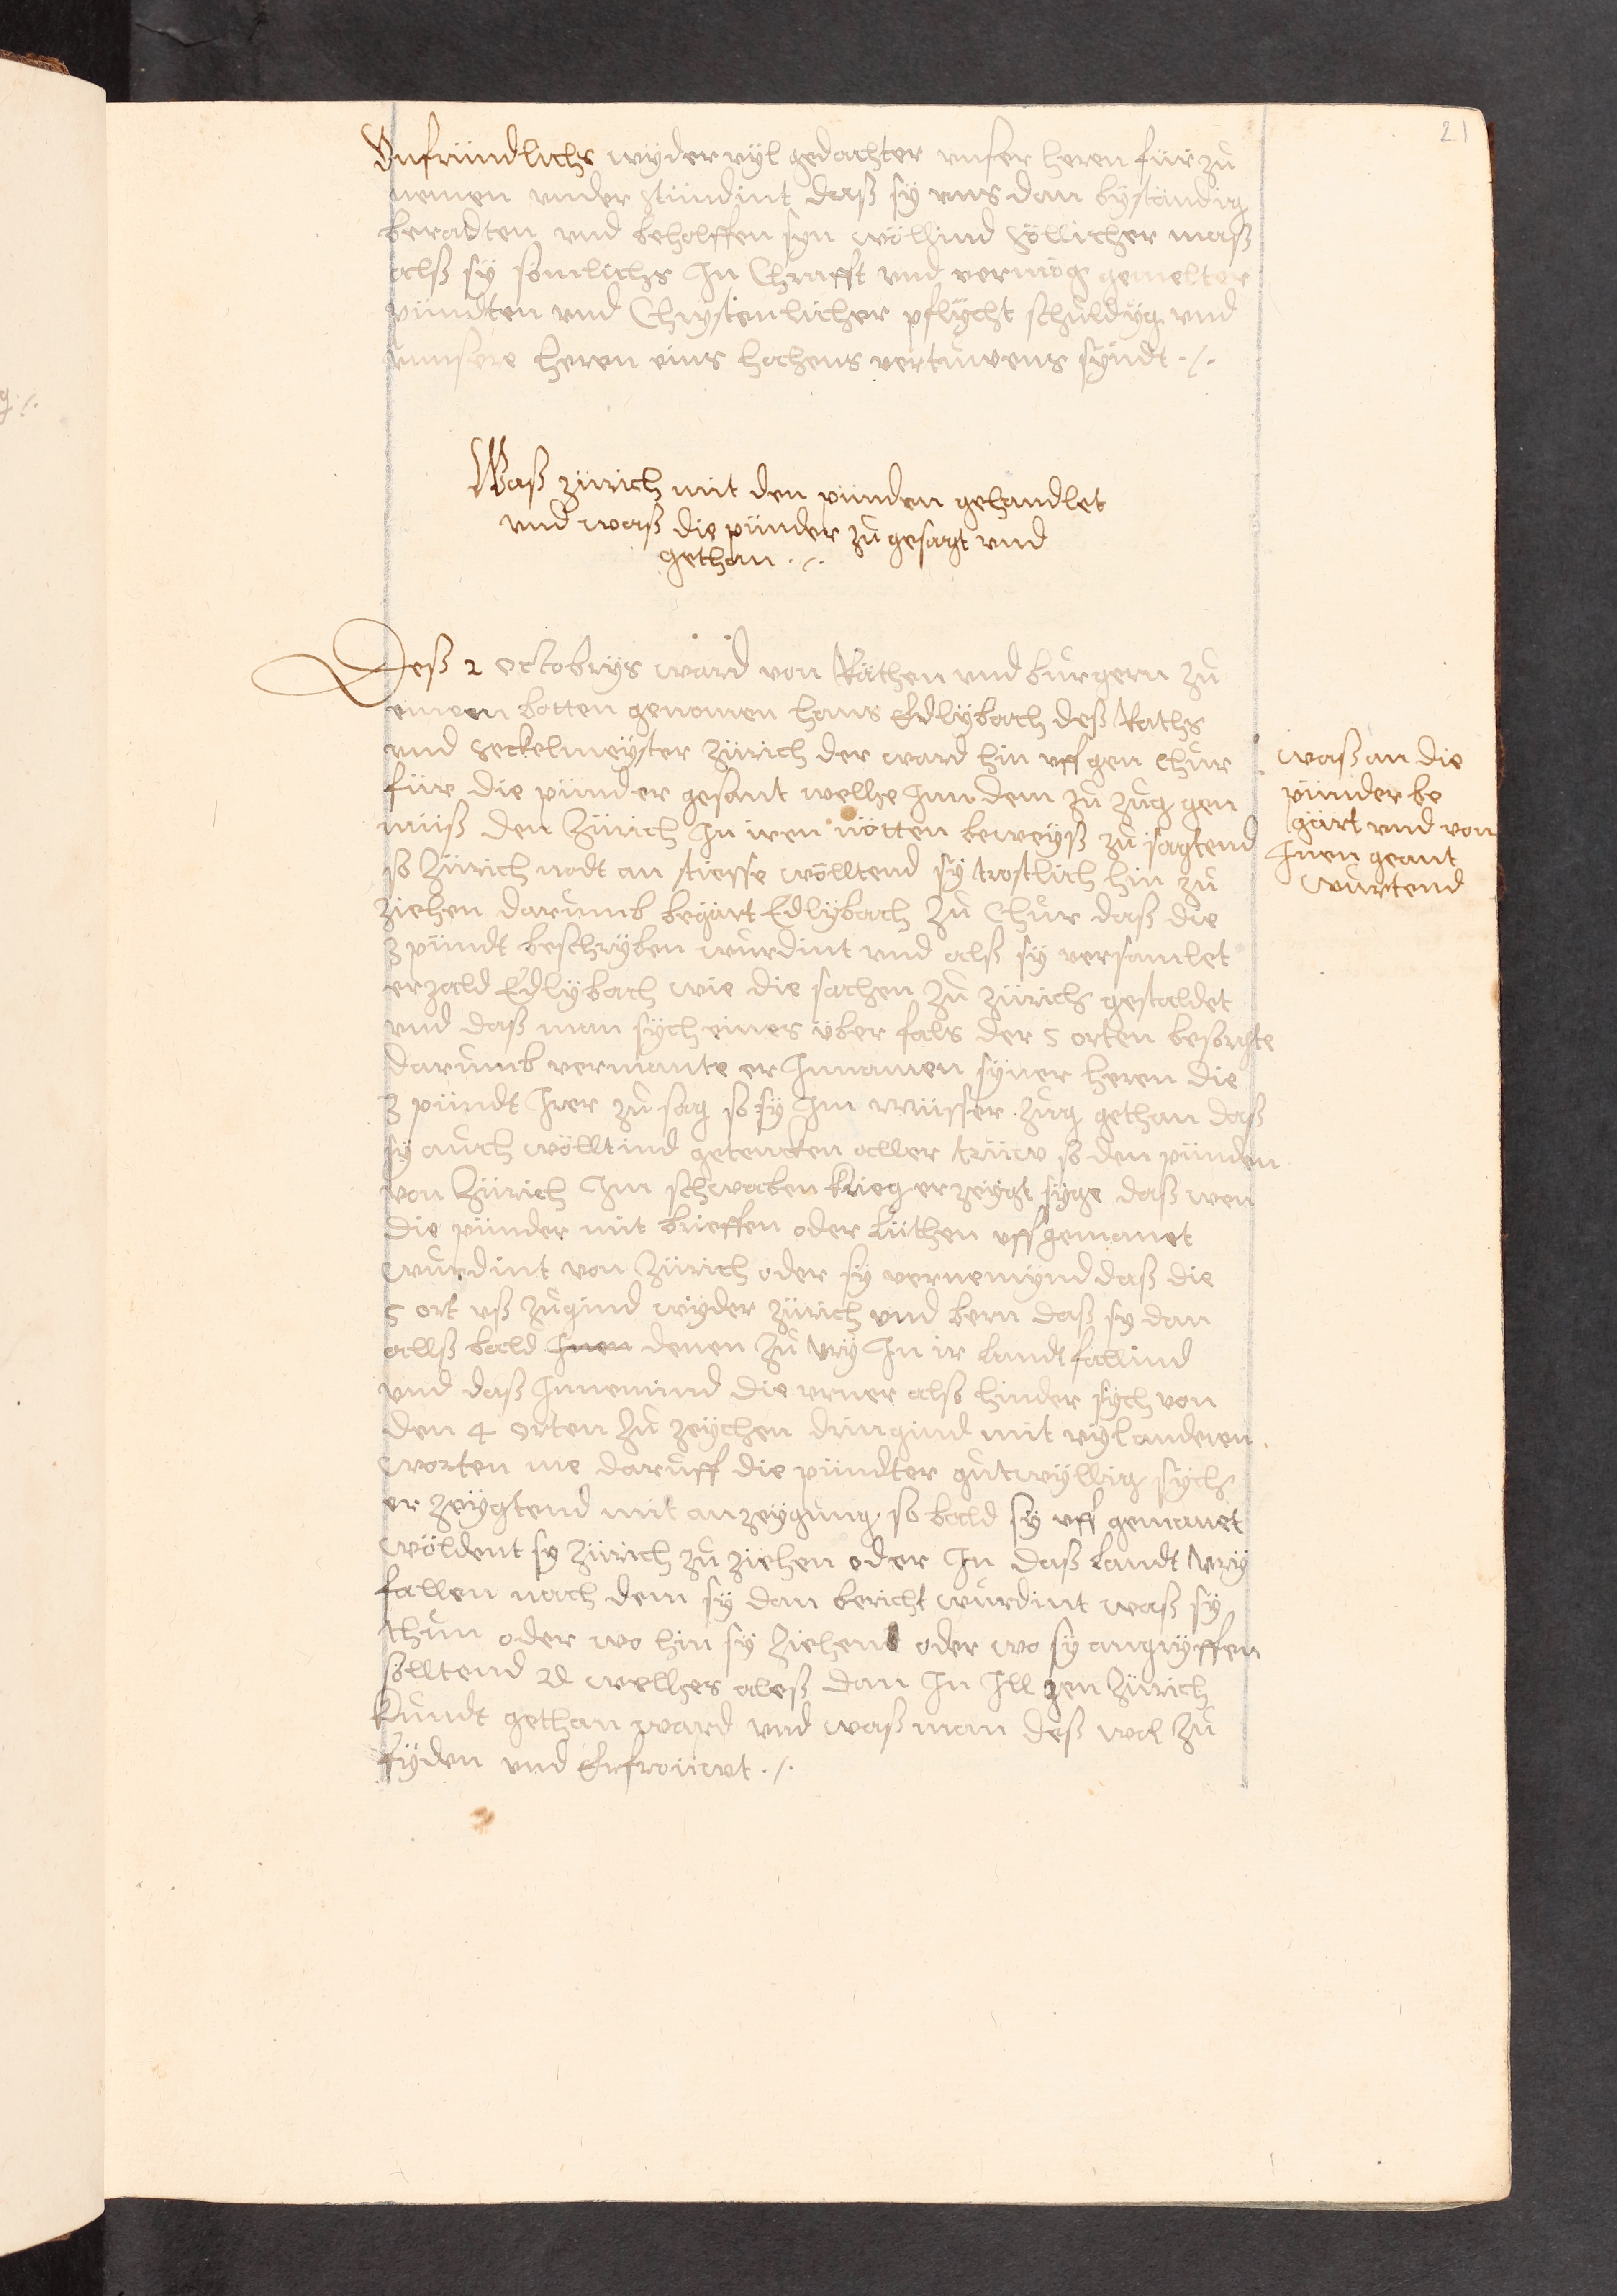 21
Unfründlichs wyder vyl gedachter unser heren für zů
nemen under stündint daß sy uns dan byständig
beradten und beholffen syn wöllind söllicher maß
alß sy somlichs In Chrafft und vermög gemelter
pündten und Chrystenlicher pflycht schuldyg und
unnsere heren eins hochens vertruwens syndt ./.
Waß zürich mit den pünden gehandlet
und waß die pünder zů gesagt und
gethan ./.
Deß 2 octobrys ward von Räthen und burgern zů
einem botten genomen hans Edlybach deß Raths
und seckelmeyster Zürich der ward hin uff gen Chur
für die pünder gesant wellhe Inn dem zů zug gen
müß den Zürich In iren nötten beweyß zů sagtend
so Zürich nodt an stiesse wölltend sy trostlich hin zů
ziehen darumb begärt Edlybach zů Chur daß die
3 pündt beschryben wurdint und alß sy versamlet
erzald Edlybach wie die sachen zů zürich gestaldet
und daß man sych eines über fals der 5 orten besorgte
darumb vermante er Innamen syner heren die
3 pündt Irer zů sag so sy Im müsser zug gethan daß
sy auch wölltind gedencken aller trüw so den pünden
von Zürich Im schwaben krieg erzeygt syge daß wen
die pünder mit brieffen oder Lüthen uff gemanet
wurdint von Zürich oder sy vernemynd daß die
5 ort uß zugind wyder zürich und bern daß sy dan
allß bald Inen denen zů ury In ir Landt fallind
und daß Innemind die urner also hinder sych von
den 4 orten zů zeychen dringind mit vyl anderen
worten me daruff die pündter gutwyllig sych
er zeygtend mit anzeygung so bald sy uff gemanet
wöldent sy Zürich zů ziehen oder In daß Landt ury
fallen nach dem sy dan bericht wurdint waß sy
thun oder wo hin sy ziehend oder wo sy angryffen
solltend wellhes aleß dan In Ill gen Zürich
kundt gethan ward und waß man deß wol zů
fryden und Erfrouwt ./.
waß an die
pünder be
gärt und von
Inen geant
wurtend